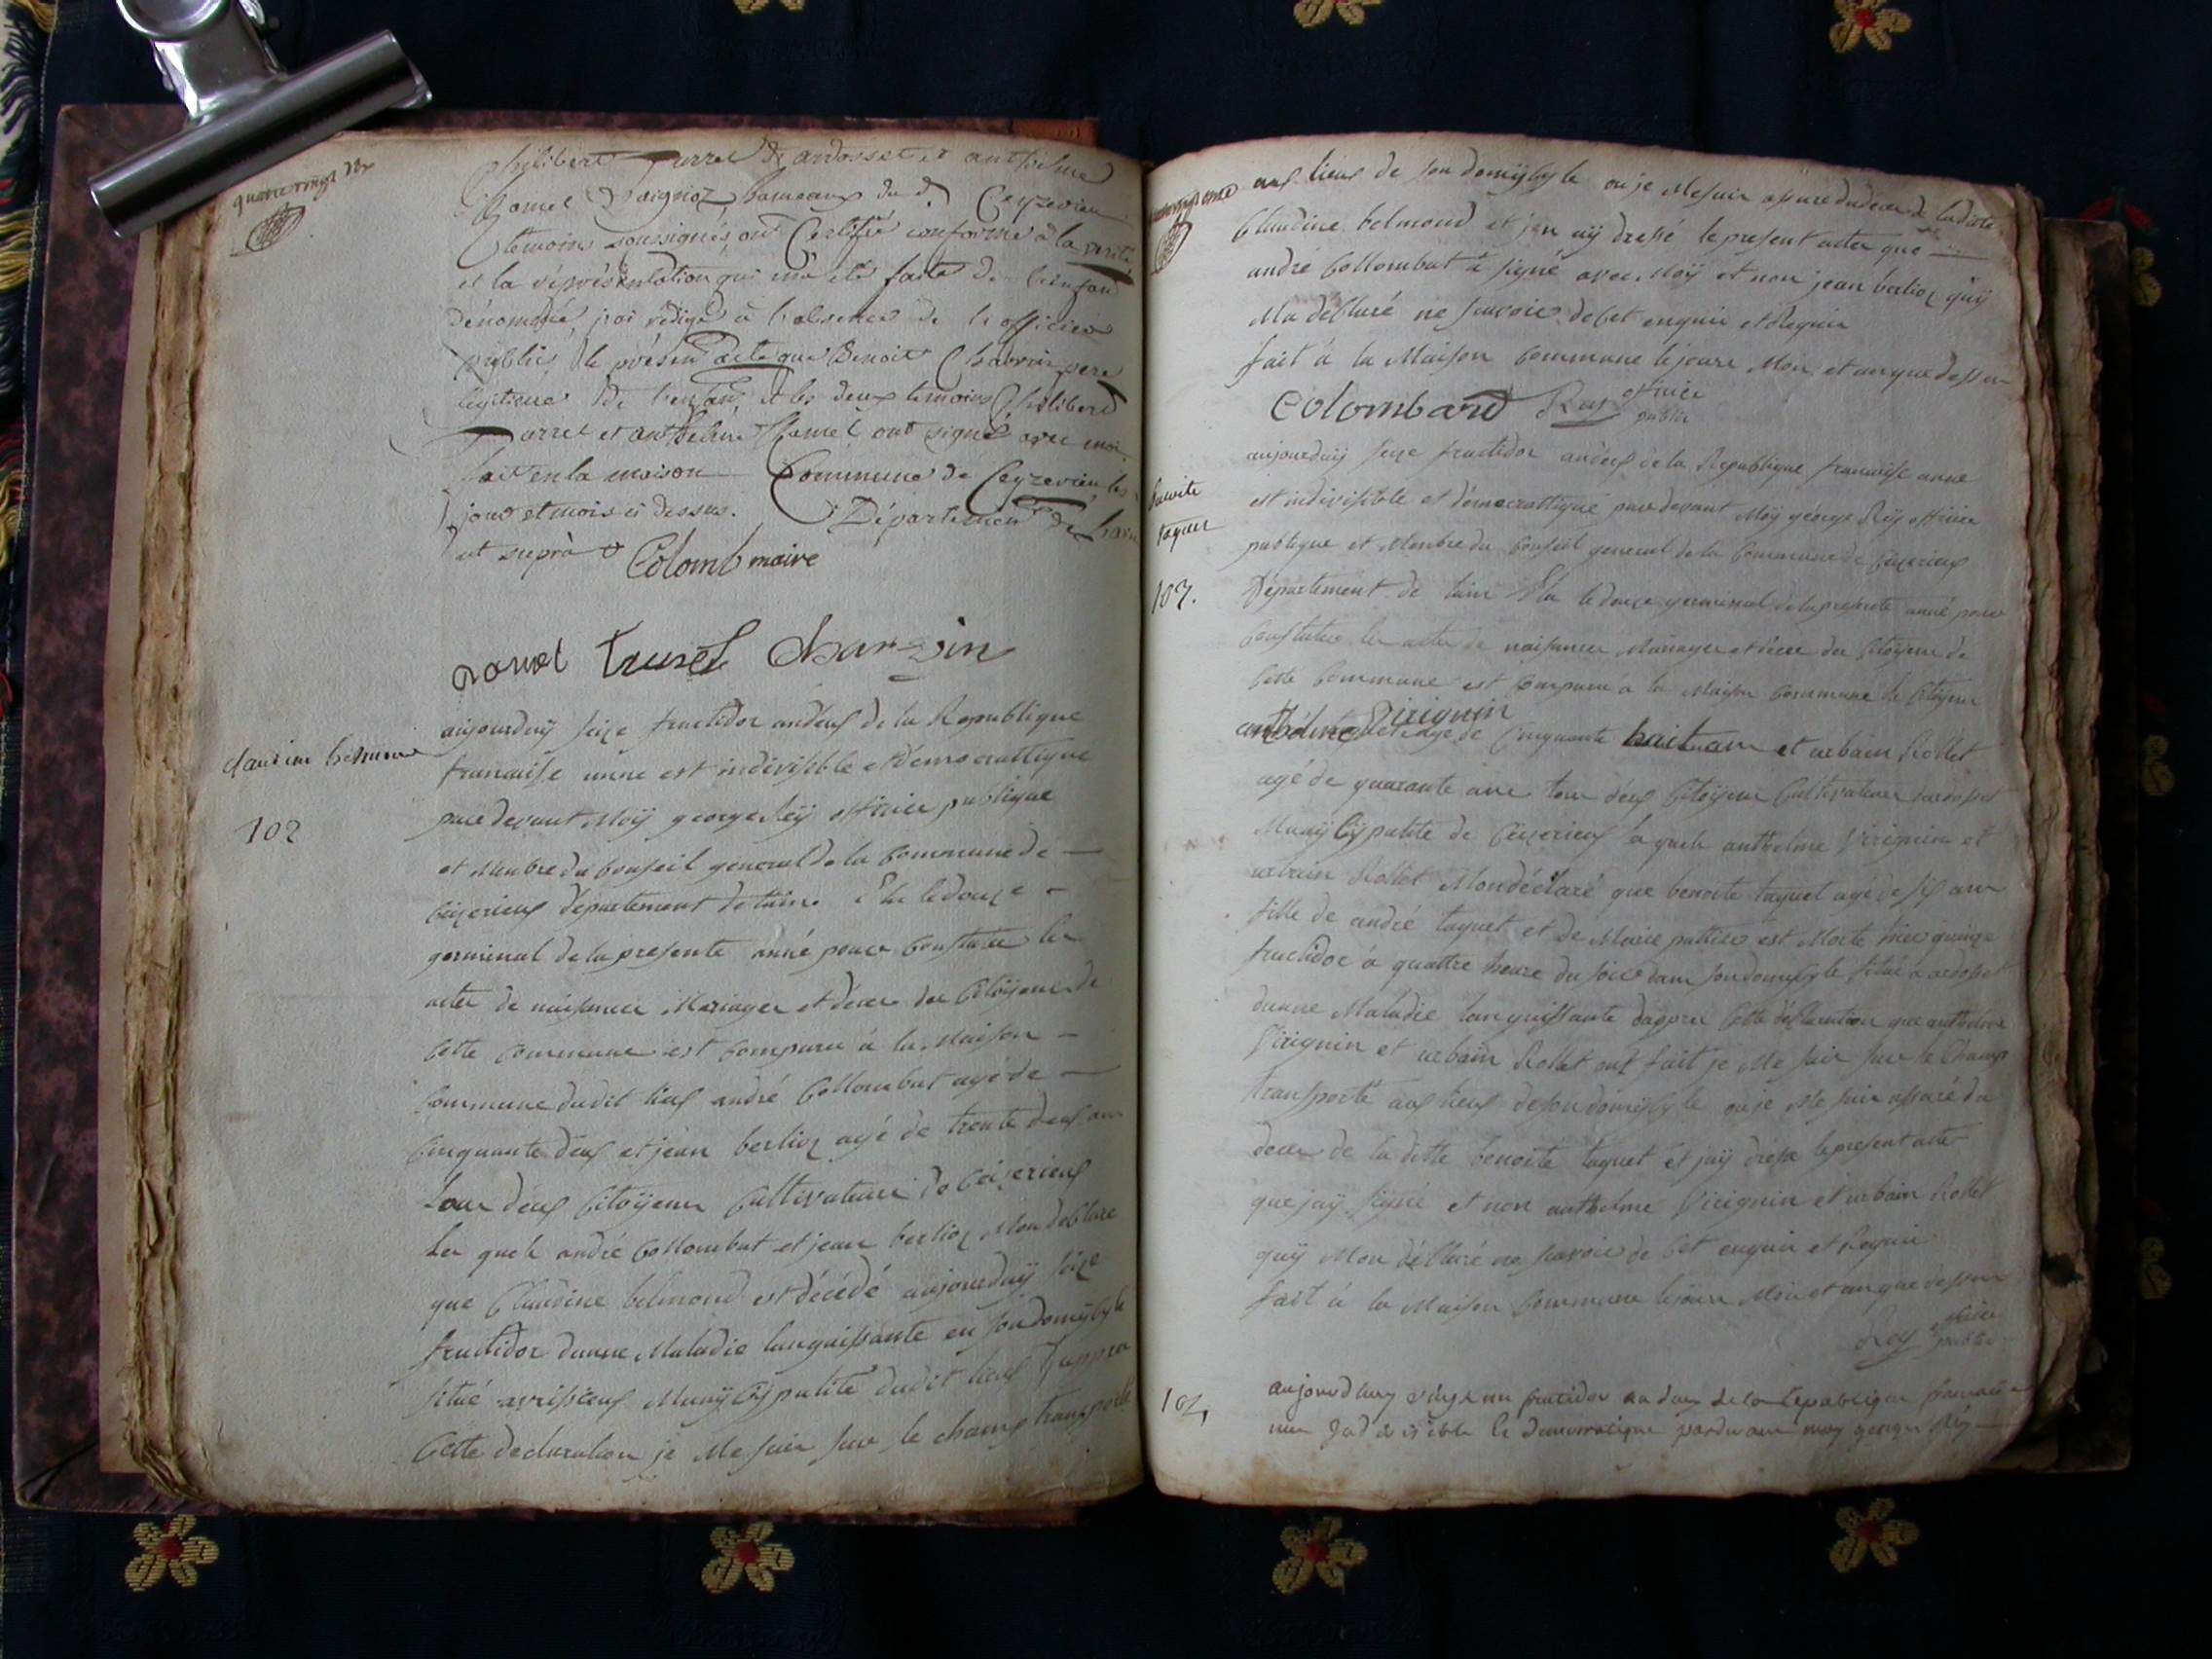 quatre vingt dix
philibert Turrel d'ardosset et anthelme
Chamel Daignoz hameaux du d. Ceyzerieu
témoins soussignés, ont Certifié conforme à la verité
et la représentation qui m'a été faite de l'enfant
dénommé, j'ai rédigé à l'absence de l'officier
public, le présent acte que Benoit Charvin pere
légitime de l'enfant et les deux témoins philibert
Turrel et anthelme Chamel ont signé avec moi
fait en la maison Commune de Ceyzerieu les
jour et mois ci dessus. Département de l'ain
ut suprà Colomb maire
turrel Charvin
102
aujourduÿ seize fructidor an deux de la Republique
francaise unne est indivisible et démocrattique
pardevant Moÿ george Reÿ officier publique
et Menbre du Conseil general de la Commune de
Ceizerieux département de Lain. Elu le douze
germinal de la presente anné pour Constater les
actes de naisances Mariages et déces des Citoÿens de
Cette Commune est Comparu à la Maison
Commune dudit lieux andré Collombat agé de
Cinquante deux et jean berlioz agé de trente deux ans
tous deux Citoÿens Cultivateurs de Ceizerieux
Les quels andré Collombat et jean berlioz Mon déClaré
que Claudine belmond est décédé aujourduÿ seize
fructidor dunne Maladie languissante en son domiÿCyle
situé avrissieux MuniÿCÿpalité dudit lieux dappres
Cette declaration je Me suis sur le champ transporté
aux lieux de son domiÿcyle ou je Me suis assuré du deces de ladite
Claudine belmond et jen aÿ dressé le present actes que
andré Collombat à signé avec Moÿ et non jean berlioz quÿ
Ma déClaré ne savoir de Cet enquis et Requis
fait à la Maison Commune le jours Mois et an que dessus
Colombard Rey officier
public
benoite
taquet
103.
aujourduÿ seize fructidor an deux de la Republique francaise unne
est indivisible et démocrattique pardevant Moÿ george Reÿ officier
publique et Menbre du Conseil general de la Commune de Ceizerieux
Département de Lain Elu le douze germinal de la presente anné pour
Constater les actes de naisances Mariages et déces des Citoÿens de
Cette Commune est Comparu à la Maison Commune les Citoyens
anthelme Virignin agé de Cinquante huit ans et urbain Rollet
agé de quarante ans tous deux Citoÿens Cultivateurs dardosset
MuniÿCÿpalité de Ceizerieux les quels anthelme Virignin et
urbain Rollet Mon déclaré que benoite taquet agé de six ans
fille de andré taquet et de Marie est Morte hier quinze
fructidor à quattre heure du soir dans son domiÿcyle situé à ardosset
dunne Maladie languissante dappres Cette déClaration que anthelme
Virignin et urbain Rollet ont fait je Me suis sur le Champ
transporté aux lieux de son domiÿcyle ou je Me suis assuré du
deces de la ditte benoite taquet et jaÿ dressé le present acte
que jaÿ signé et non anthelme Virignin et urbain Rollet
quÿ Mon déClaré ne savoir de Cet enquis et Requis
fait à la Maison Commune le jours Mois et an que dessus
Rey officier
public
104
aujourdhuy vingt un fructidor an deux de la Republique francaise
une Indivisible & Democratique pardevant moy george Rey